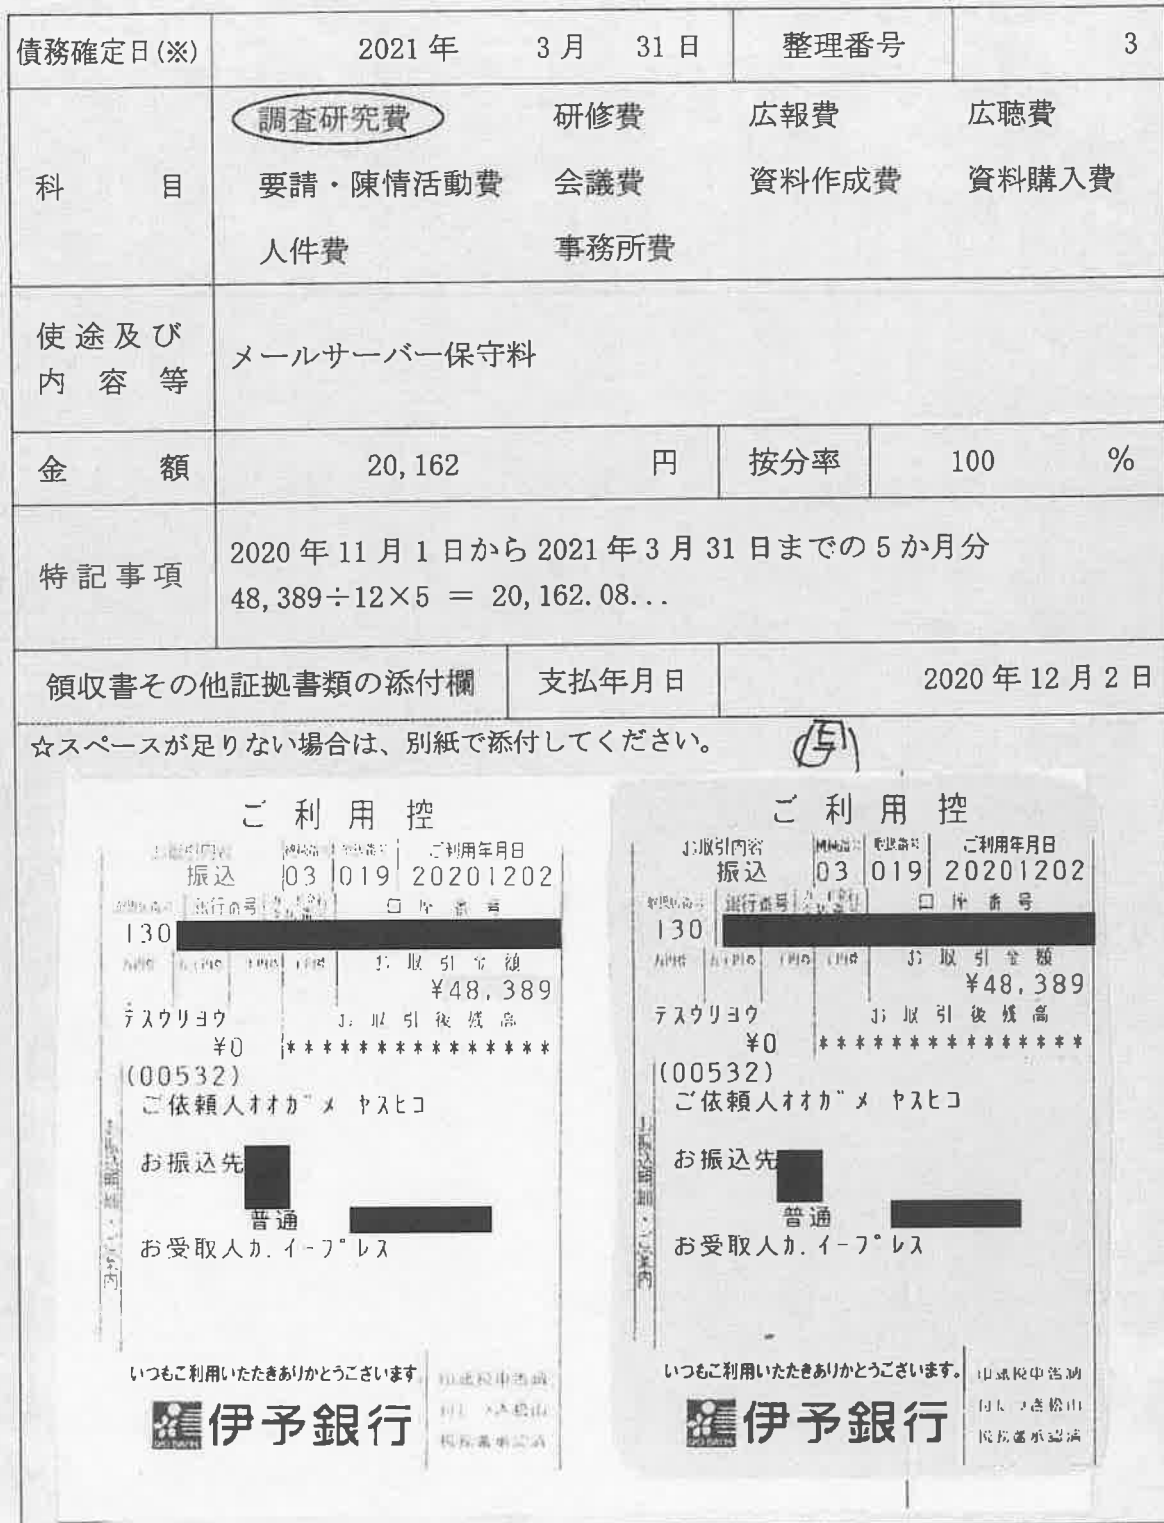 債務確定日(※) 2021年 3月 31日 整理番号 3
科目 調査研究費 研修費 広報費 広聴費
要請・陳情活動費 会議費 資料作成費 資料購入費
人件費 事務所費
使途及び内容等 メールサーバー保守料
金額 20,162 円 按分率 100 %
特記事項 2020年11月1日から2021年3月31日までの5か月分
48,389÷12×5 = 20,162.08...
領収書その他証拠書類の添付欄 支払年月日 2020年12月2日
☆スペースが足りない場合は、別紙で添付してください。
ご利用控
お取引内容 ご利用年月日
振込 03 019 20201202
銀行番号 口座番号
130
お取引金額
¥48,389
テスウリヨウ お取引後残高
¥0 **************
(00532)
ご依頼人オオガメ ヤスヒコ
お振込先
普通
お受取人カ.イープレス
いつもご利用いただきありがとうございます
伊予銀行
ご利用控
お取引内容 ご利用年月日
振込 03 019 20201202
銀行番号 口座番号
130
お取引金額
¥48,389
テスウリヨウ お取引後残高
¥0 ***************
(00532)
ご依頼人オオガメ ヤスヒコ
お振込先
普通
お受取人カ.イープレス
いつもご利用いただきありがとうございます。
伊予銀行